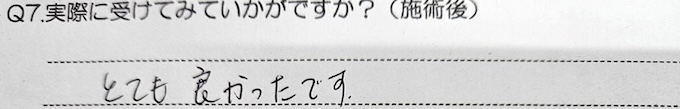 Q7.実際に受けてみていかがですか？（施術後）
とても良かったです.